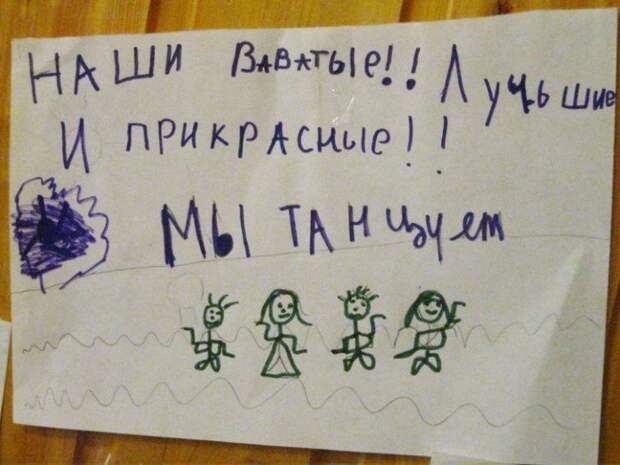 НАШИ ВАВАТЫЕ!! Лучьшие
И ПРИКРАСНЫЕ!!
МЫ ТАНЦуем